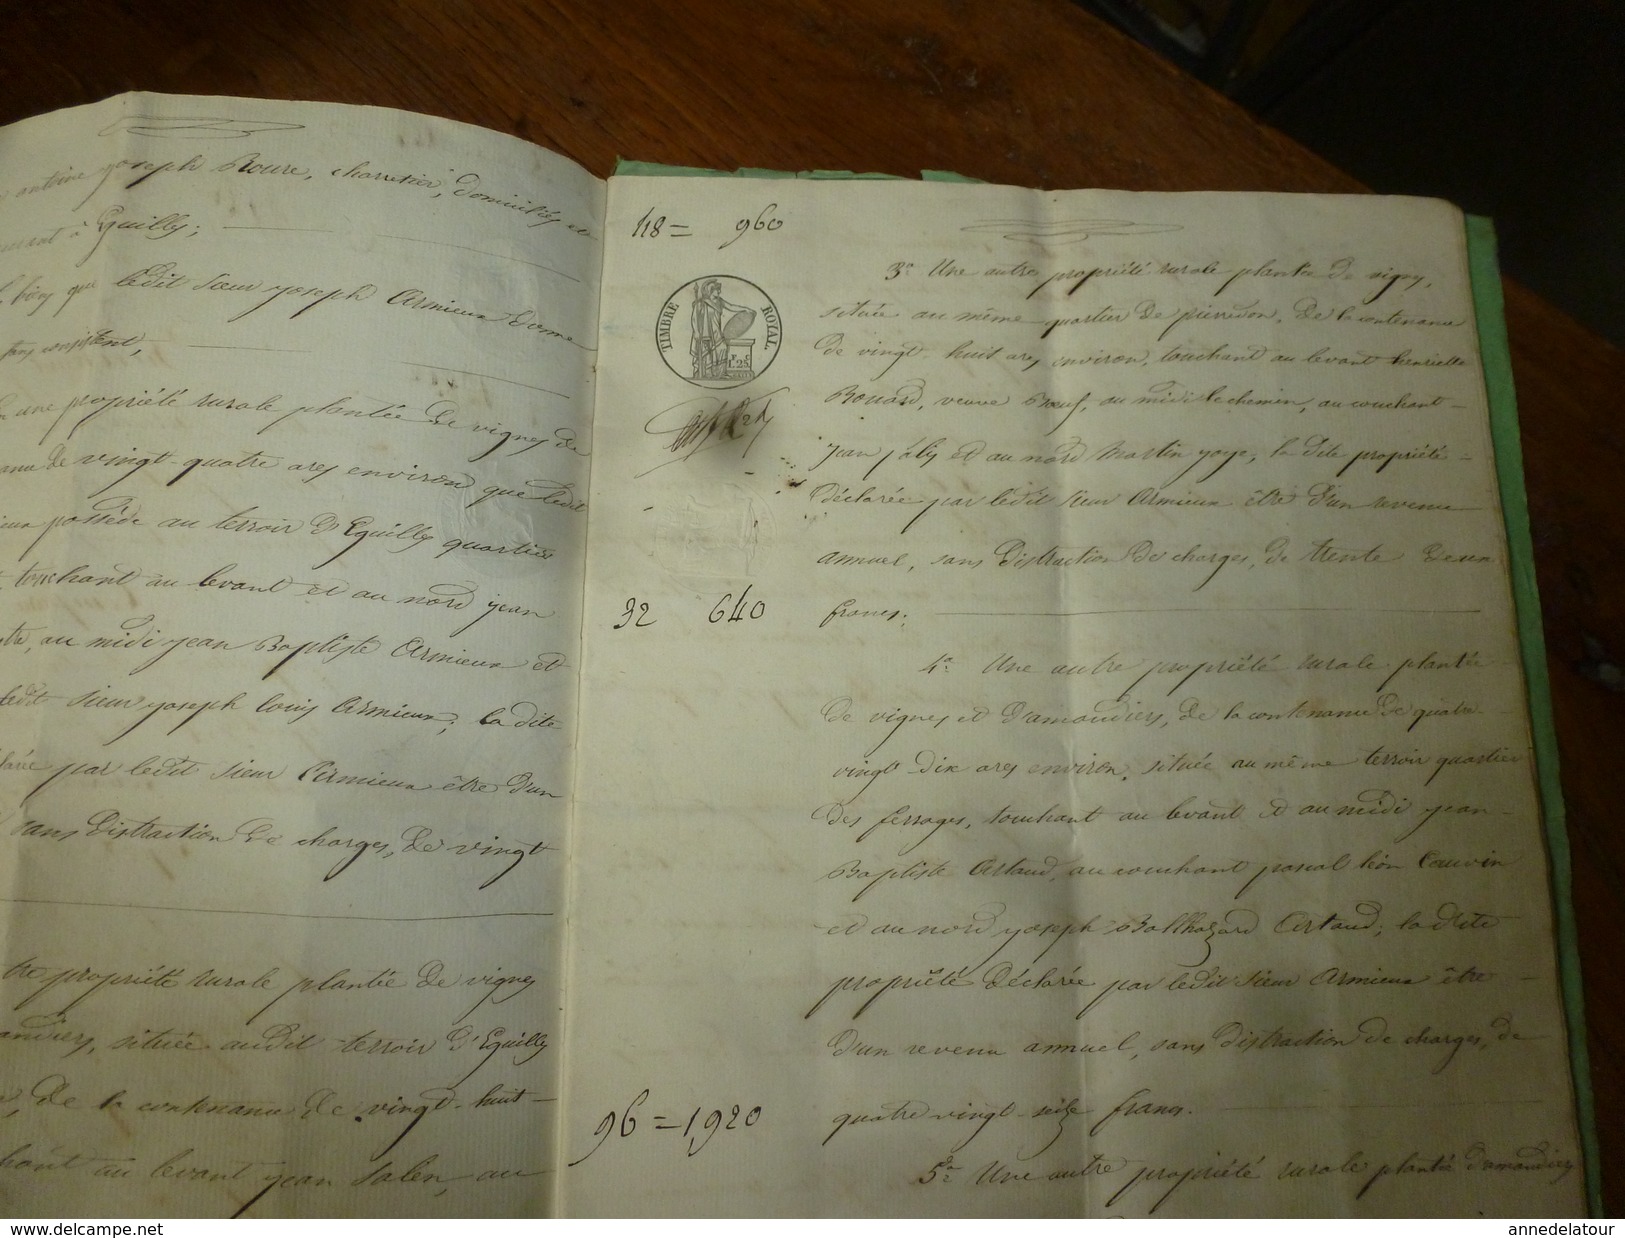 antoine joseph Roure, charretier, domiciliés et
à Eguilly;
que ledit sieur joseph Armieux donne
consistent,
une propriété rurale plantée de vignes de
de vingt-quatre ares environ que ledit
possède au terroir d'Eguilly quartier
touchant au levant et au nord jean
au midi jean Baptiste Armieux et
ledit sieur joseph louis Armieux; la dite
par ledit sieur Armieux être d'un
sans distraction de charges, de vingt
propriété rurale plantée de vignes
située audit terroir d'Eguilly
de la contenance de vingt-huit
au levant jean Salen, au
48 = 960
TIMBRE ROYAL.
1F.25C
3° Une autre propriété rurale plantée de vignes,
située au même quartier de pierredon, de la contenance
de vingt-huit ares environ, touchant au levant henriette
Bouard, veuve Boeuf, au midi le chemin, au couchant
jean joly et au nord Martin joye, la dite propriété
déclarée par ledit sieur Armieux être d'un revenu
annuel, sans distraction de charges, de trente deux
32 640
francs;
4° Une autre propriété rurale plantée
de vignes et d'amandiers, de la contenance de quatre-
vingt-dix ares environ, située au même terroir quartier
des ferrages, touchant au levant et au midi jean-
Baptiste Artaud, au couchant pascal léon Cauvin
et au nord joseph Balthazard Artaud; la dite
propriété déclarée par ledit sieur Armieux être
d'un revenu annuel, sans distraction de charges, de
96 = 1,920
quatre vingt-seize francs.
5° Une autre propriété rurale plantée d'amandiers
www.delcampe.net
annedelatour